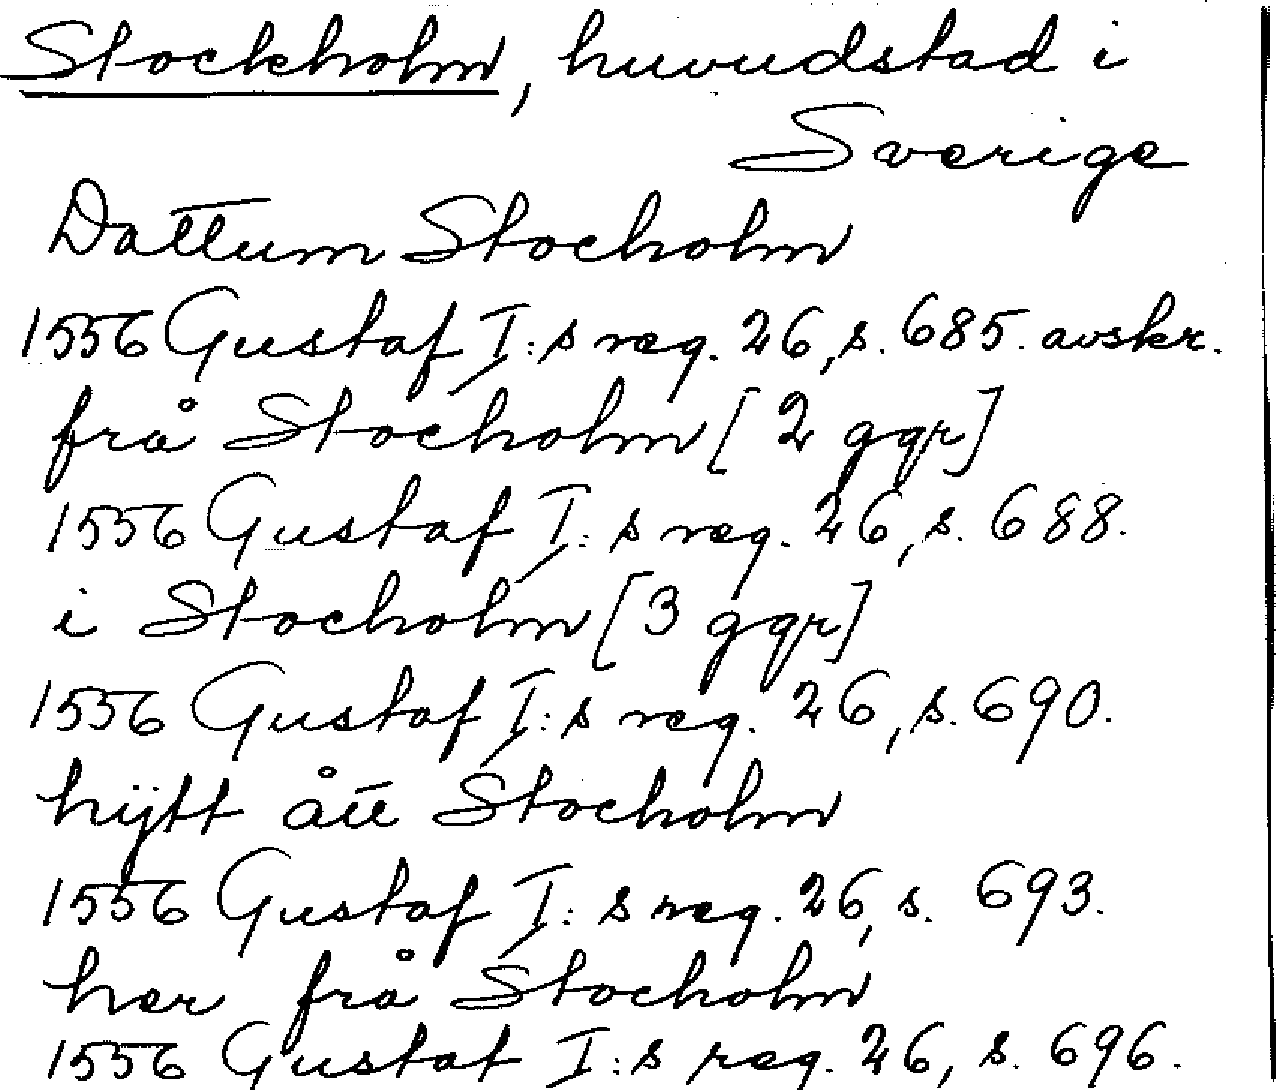 Stockholm, huvudstad i
Sverige
Dattum Stocholm
1556 Gustaf I:s reg. 26, s. 685. avskr.
frå Stocholm [2 ggr]
1556 Gustaf I:s reg. 26, s. 688.
i Stocholm [3 ggr]
1556 Gustaf I:s reg. 26, s. 690.
hijtt ått Stocholm
1556 Gustaf I:s reg. 26, s. 693.
her frå Stocholm
1556 Gustaf I:s reg. 26, s. 696.